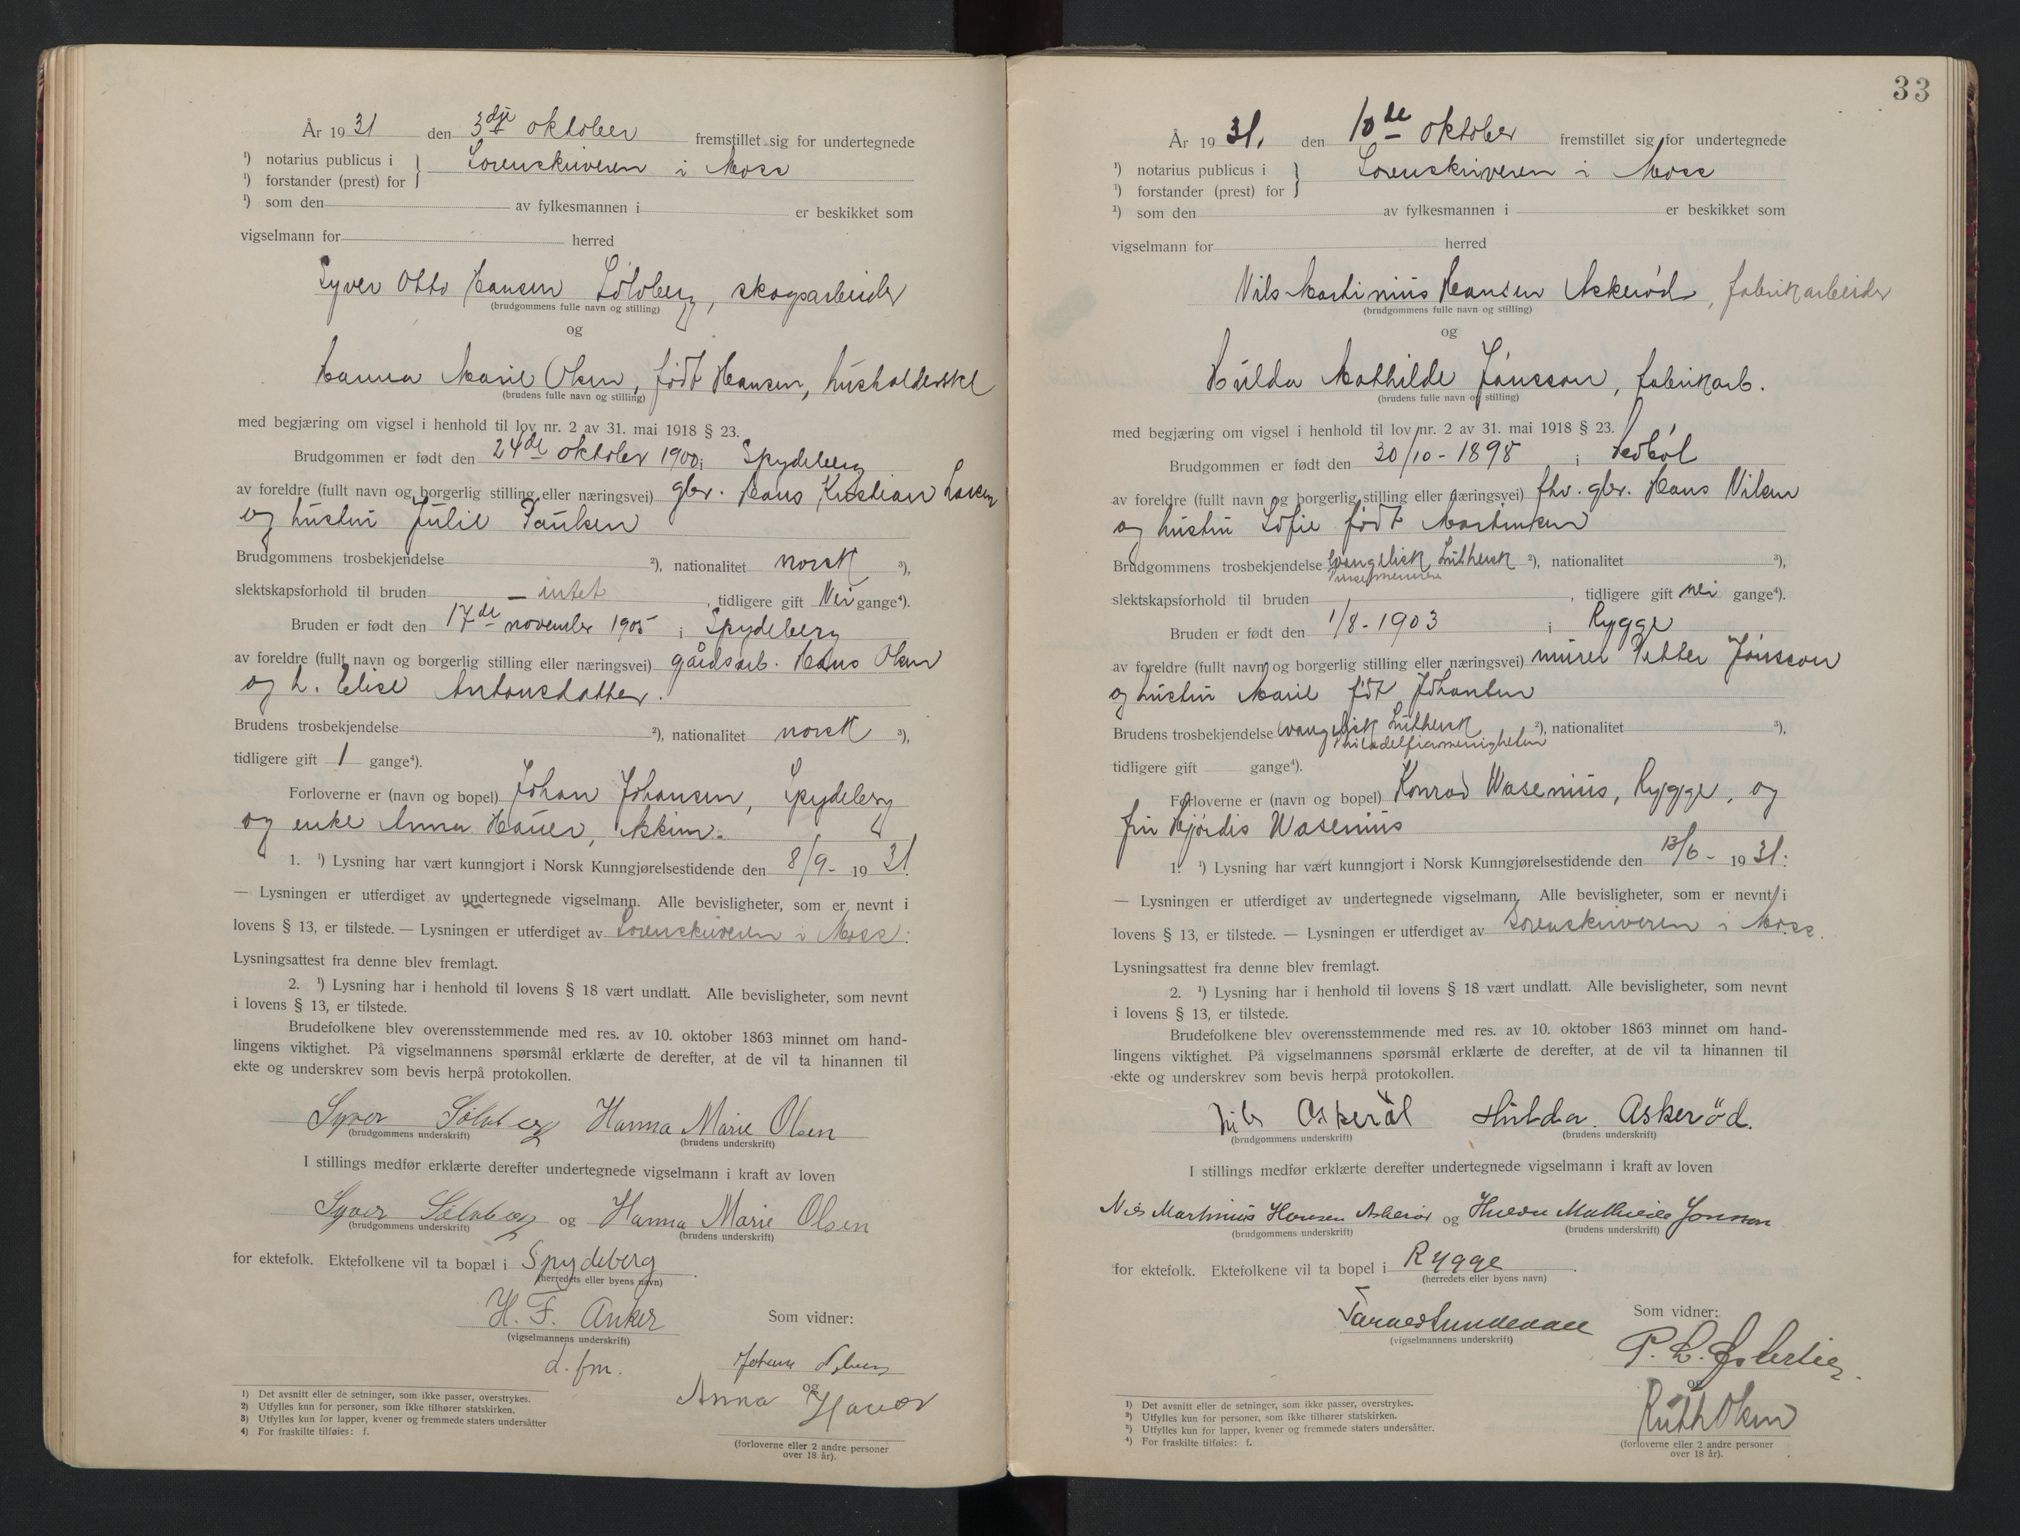 År 1931 den 3dje oktober fremstillet sig for undertegnede
¹) notarius publicus i } Sorenskriveren i Moss
¹) forstander (prest) for
¹) som den av fylkesmannen i er beskikket som
vigselmann for herred
Syver Otto Hansen Sølvberg, skogsarbeider
(brudgommens fulle navn og stilling)
og
Hanna Marie Olsen, født Hansen, husholderske
(brudens fulle navn og stilling)
med begjæring om vigsel i henhold til lov nr. 2 av 31. mai 1918 § 23.
Brudgommen er født den 24de oktober 1900 i Spydeberg
av foreldre (fullt navn og borgerlig stilling eller næringsvei) gbr. Hans Kristian Larsen
og hustru Julie Paulsen
Brudgommens trosbekjendelse ²), nationalitet norsk ³),
slektskapsforhold til bruden – intet , tidligere gift Nei gange⁴).
Bruden er født den 17de november 1905 i Spydeberg
av foreldre (fullt navn og borgerlig stilling eller næringsvei) gårdsarb. Hans Olsen
og h. Elise Antonsdatter.
Brudens trosbekjendelse ²), nationalitet norsk ³),
tidligere gift 1 gange⁴).
Forloverne er (navn og bopel) Johan Johansen, Spydeberg
og enke Anna Hauer, Askim.
1. ¹) Lysning har vært kunngjort i Norsk Kunngjørelsestidende den 8/9- 1931.
— Lysningen er utferdiget av undertegnede vigselmann. Alle bevisligheter, som er nevnt i
lovens § 13, er tilstede. — Lysningen er utferdiget av Sorenskriveren i Moss.
Lysningsattest fra denne blev fremlagt.
2. ¹) Lysning har i henhold til lovens § 18 vært undlatt. Alle bevisligheter, som nevnt
i lovens § 13, er tilstede.
Brudefolkene blev overensstemmende med res. av 10. oktober 1863 minnet om hand-
lingens viktighet. På vigselmannens spørsmål erklærte de derefter, at de vil ta hinannen til
ekte og underskrev som bevis herpå protokollen.
Syver Sølvberg Hanna Marie Olsen
(brudgommens underskrift) (brudens underskrift)
I stillings medfør erklærte derefter undertegnede vigselmann i kraft av loven
Syver Sølvberg og Hanna Marie Olsen
(brudgommens underskrift) (brudens underskrift)
for ektefolk. Ektefolkene vil ta bopæl i Spydeberg
(herredets eller byens navn)
H. F. Anker Som vidner:
(vigselmannens underskrift)
d. fm.
Johan
og
Anna Hauer
(forloverne eller 2 andre personer
over 18 år).
1) Det avsnitt eller de setninger, som ikke passer, overstrykes.
2) Utfylles kun for personer, som ikke tilhører statskirken.
3) Utfylles kun for lapper, kvener og fremmede staters undersåtter
4) For fraskilte tilføies: f.
33
År 1931. den 10de oktober fremstillet sig for undertegnede
¹) notarius publicus i } Sorenskriveren i Moss
¹) forstander (prest) for
¹) som den av fylkesmannen i er beskikket som
vigselmann for herred
Nils Martinius Hansen Askerød, fabrikarbeider
(brudgommens fulle navn og stilling)
og
Hulda Mathilde Jonsson, fabrikarb.
(brudens fulle navn og stilling)
med begjæring om vigsel i henhold til lov nr. 2 av 31. mai 1918 § 23.
Brudgommen er født den 30/10-1898 i Hobøl
av foreldre (fullt navn og borgerlig stilling eller næringsvei) fhv. gbr. Hans Nilsen
og hustru Sofie født Martinsen
Brudgommens trosbekjendelse evangelisk Luthersk ²), nationalitet ³),
Pinsemennene
slektskapsforhold til bruden , tidligere gift nei gange⁴).
Bruden er født den 1/8-1903 i Rygge
av foreldre (fullt navn og borgerlig stilling eller næringsvei) murer Petter Jonsson
og hustru Marie født Johansen
Brudens trosbekjendelse evangelisk Luthersk ²), nationalitet ³),
Philadelfiamenigheten
tidligere gift gange⁴).
Forloverne er (navn og bopel) Konrad Wasenius, Rygge, og
fru Hjørdis Wasenius
1. ¹) Lysning har vært kunngjort i Norsk Kunngjørelsestidende den 13/6- 1931.
— Lysningen er utferdiget av undertegnede vigselmann. Alle bevisligheter, som er nevnt i
lovens § 13, er tilstede. — Lysningen er utferdiget av Sorenskriveren i Moss.
Lysningsattest fra denne blev fremlagt.
2. ¹) Lysning har i henhold til lovens § 18 vært undlatt. Alle bevisligheter, som nevnt
i lovens § 13, er tilstede.
Brudefolkene blev overensstemmende med res. av 10. oktober 1863 minnet om hand-
lingens viktighet. På vigselmannens spørsmål erklærte de derefter, at de vil ta hinannen til
ekte og underskrev som bevis herpå protokollen.
Nils Askerød Hulda Askerød.
(brudgommens underskrift) (brudens underskrift)
I stillings medfør erklærte derefter undertegnede vigselmann i kraft av loven
Nils Martinius Hansen Askerød og Hulda Mathilde Jonsson
(brudgommens underskrift) (brudens underskrift)
for ektefolk. Ektefolkene vil ta bopel i Rygge
(herredets eller byens navn)
Som vidner:
(vigselmannens underskrift)
P. L.
og
Ruth Olsen
(forloverne eller 2 andre personer
over 18 år).
¹) Det avsnitt eller de setninger, som ikke passer, overstrykes.
²) Utfylles kun for personer, som ikke tilhører statskirken.
³) Utfylles kun for lapper, kvener og fremmede staters undersåtter.
⁴) For fraskilte tilføies: f.